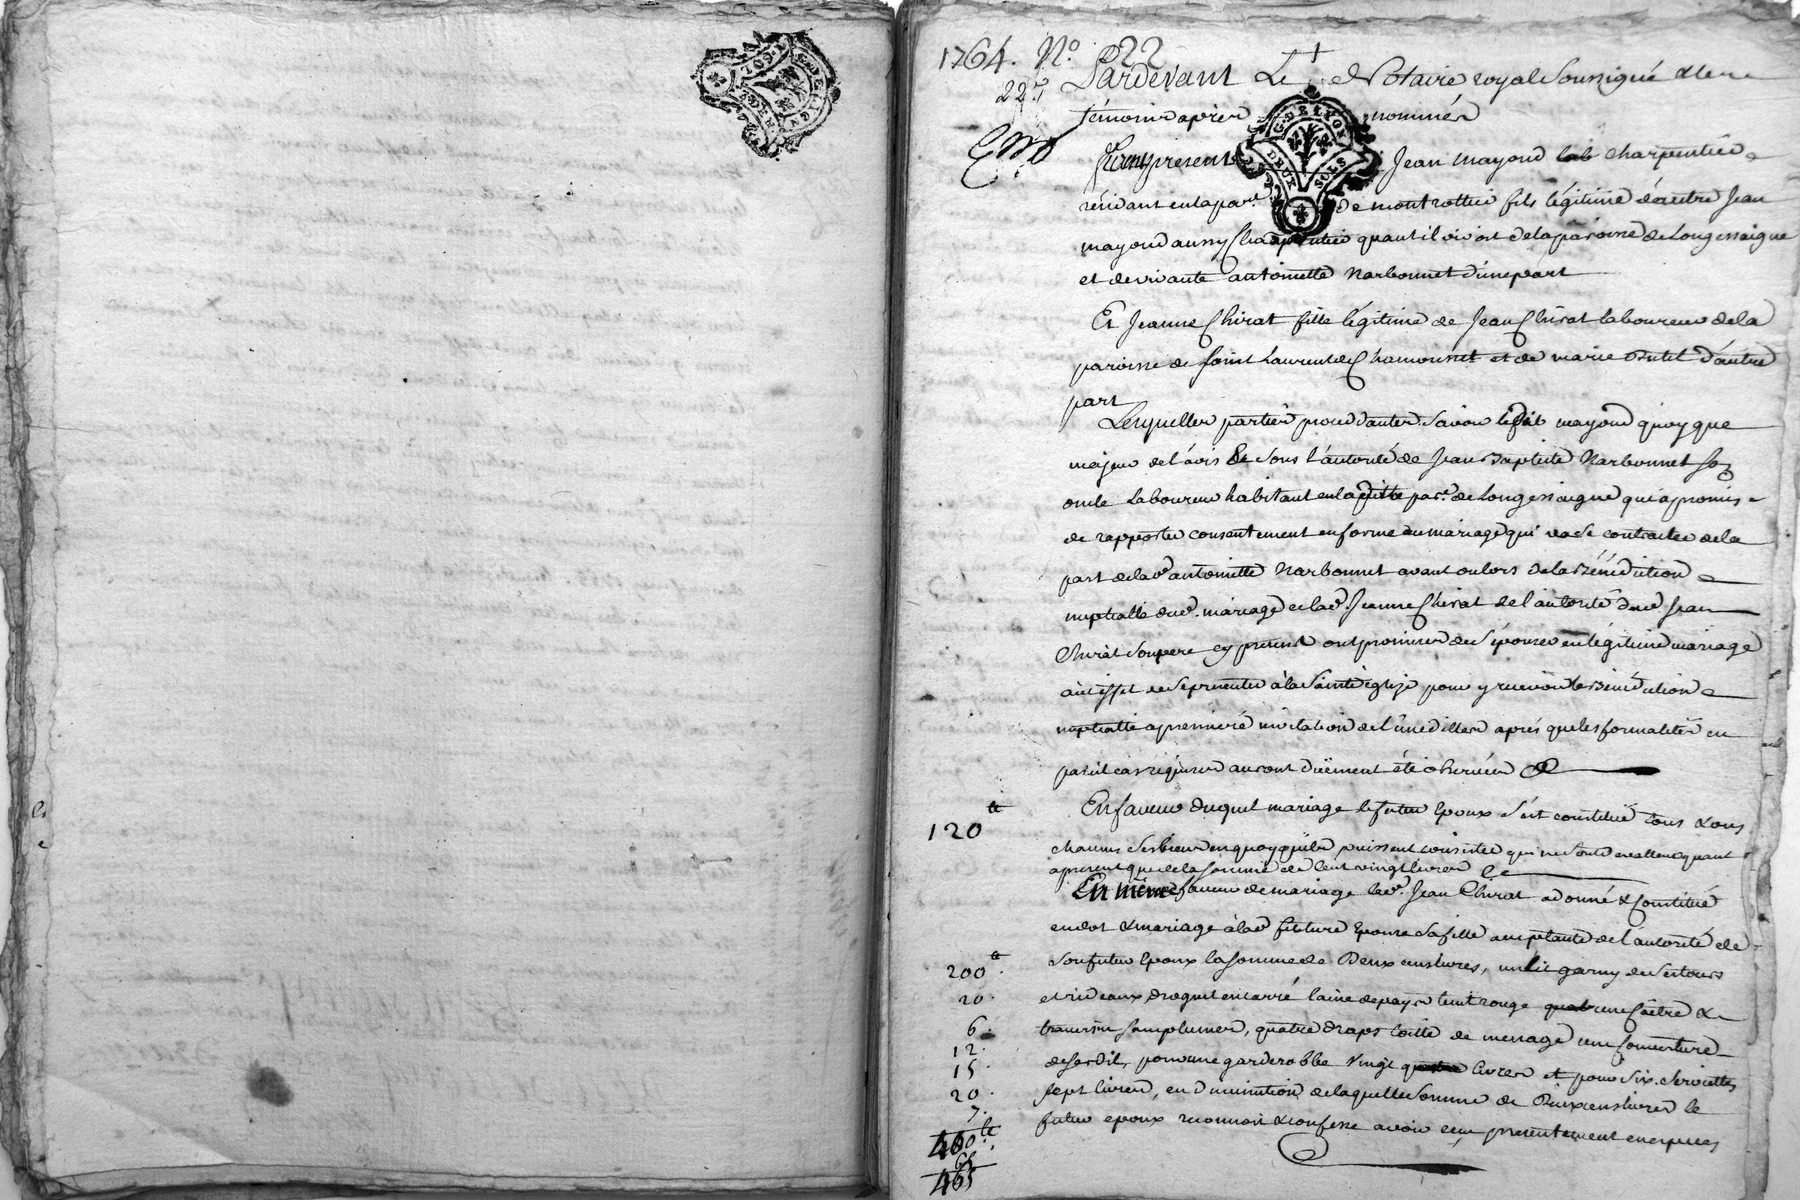 1764. N.° 22
22.e
Pardevant Le Notaire royal Soussigné & les
témoins après nommés
G. DE LYON
DEUX SOLS
furent present Jean mayoud charpentier
résidant en la par.e de montrottier fils légitime de Jean
mayoud aussy charpentier quant il vivoit de la paroisse de Longessaigne
et de vivante antoinette Narbonnet d'une part
Et Jeanne Chirat fille légitime de Jean Chirat laboureur de la
paroisse de Saint Laurent de Chamousset et de marie d'autre
part
Lesquelles parties procedantes Savoir led. mayoud quoyque
majeur de l'avis & sous l'autorité de Jean Baptiste Narbonnet son
oncle Laboureur habitant en la par.e de Longessaigne qui a promis
de rapporter consentement en forme au mariage qui va se contracter de la
part de lad. antoinette Narbonnet avant ou lors de la Bénédiction
nuptialle dud. mariage et lad. Jeanne Chirat de l'autorité dud. Jean
Chirat Son pere cy present ont promis de s'épouser en légitime mariage
a cet effet de se presenter à la Sainte église pour y recevoir la Bénédiction
nuptialle a premiere invitation de l'un d'elles après que les formalités en
pareil cas requises auront dûëment été observées
En faveur duquel mariage le futur Epoux s'est constitué tous & uns
chacuns ses biens en quoy qu'ils puissent consister qui ne sont de valleur quant
a present que de la somme de Cent vingt livres
120 tt
En même faveur de mariage led. Jean Chirat a donné & Constitué
en dot & mariage à lad. future Epouse sa fille acceptante de l'autorité de
Son futur Epoux la somme de Deux cens livres, un lit garny de ses tours
200 tt
et rideaux droguet en carré laine de pays teint rouge une &
20.
traversin sans plumes, quatre draps toille de menage une couverture
6.
12.
pour une garderobbe vingt livres et pour six serviettes
15.
sept livres, en diminution de laquelle somme de Deux cens livres le
20.
7.
futur epoux reconnoit & confesse avoir reçu presentement en especes
465